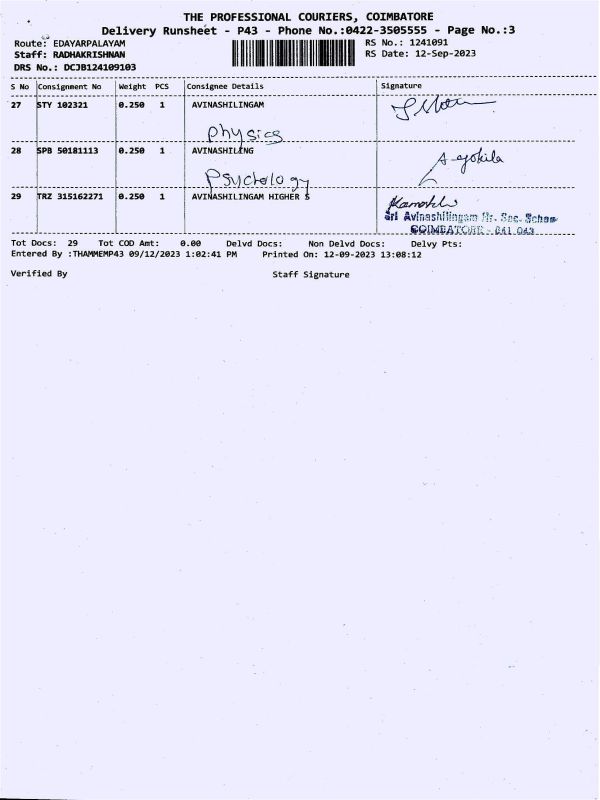 THE PROFESSIONAL COURIERS, COIMBATORE
Delivery Runsheet - P43 - Phone No.:0422-3505555 - Page No.:3
Route: EDAYARPALAYAM RS No.: 1241091
Staff: RADHAKRISHNAN RS Date: 12-Sep-2023
DRS No.: DCJB124109103
S No Consignment No Weight PCS Consignee Details Signature
27 STY 102321 0.250 1 AVINASHILINGAM
Physics
28 SPB 50181113 0.250 1 AVINASHILENG A-gokila
Psychology
29 TRZ 315162271 0.250 1 AVINASHILINGAM HIGHER S
Sri Avinashilingam Hr. Sec. School
COIMBATORE - 641 043
Tot Docs: 29 Tot COD Amt: 0.00 Delvd Docs: Non Delvd Docs: Delvy Pts:
Entered By :THAMMEMP43 09/12/2023 1:02:41 PM Printed On: 12-09-2023 13:08:12
Verified By Staff Signature